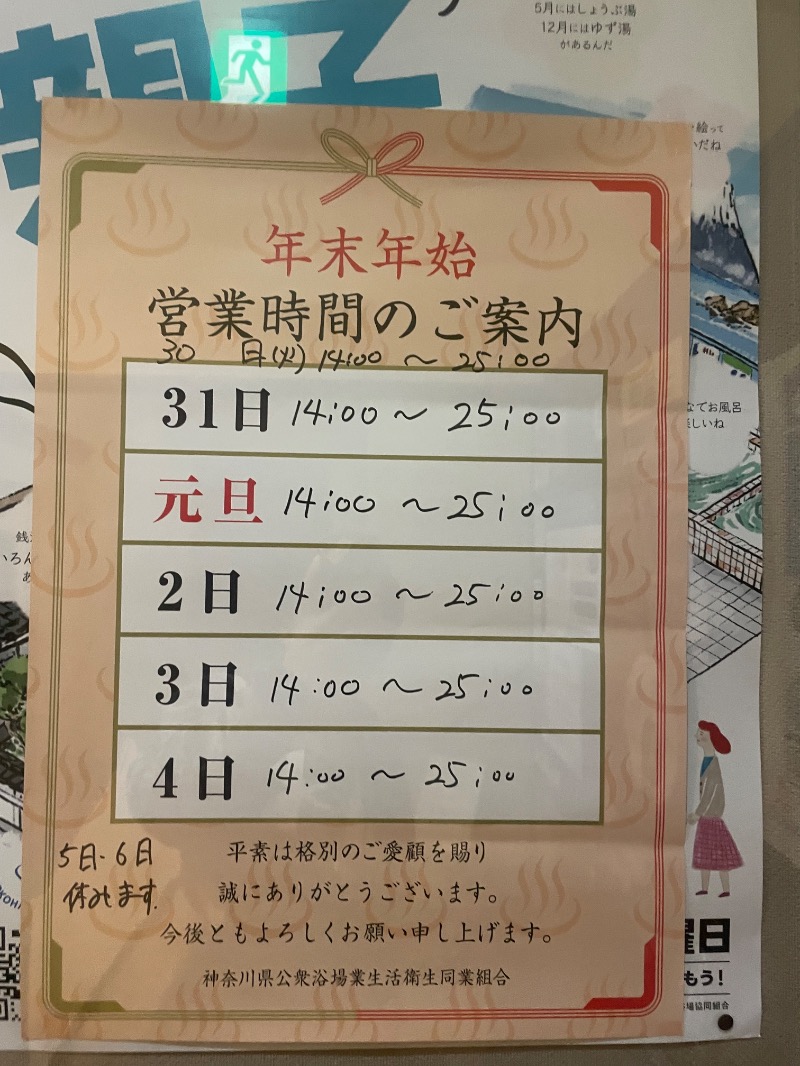 親子
5月にはしょうぶ湯
12月にはゆず湯
があるんだ
絵って
だね
年末年始
営業時間のご案内
30 日(火) 14:00 ～ 25:00
31日 14:00 ～ 25:00
元旦 14:00 ～ 25:00
2日 14:00 ～ 25:00
3日 14:00 ～ 25:00
4日 14:00 ～ 25:00
5日・6日
休みます.
平素は格別のご愛顧を賜り
誠にありがとうございます。
今後ともよろしくお願い申し上げます。
神奈川県公衆浴場業生活衛生同業組合
なでお風呂
しいね
銭
いろん
あ
曜日
もう！
場協同組合